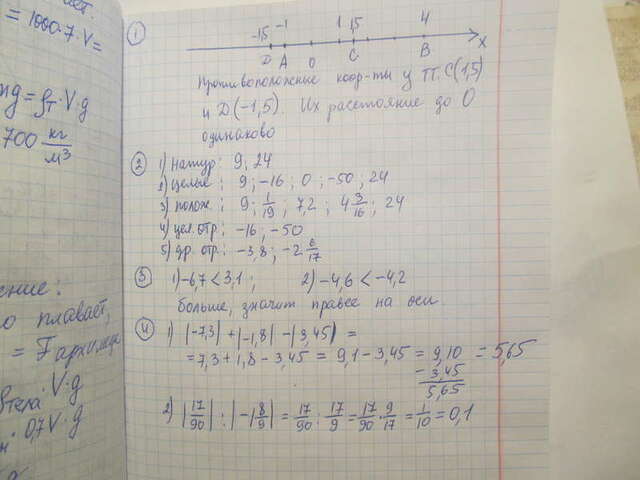 = 1000·7·V=
g = ρт·V·g
700 кг/м³
ение:
о плавает,
= F архимеда
V·g
0,7V·g
1
-1,5 -1 1 1,5 4
D A O C B X
Противоположные коор-ты у т. С(1,5)
и D(-1,5). Их расстояние до О
одинаково
2 1) натур: 9; 24
2) целые: 9; -16; 0; -50; 24
3) полож.: 9; 1/19; 7,2; 4 3/16; 24
4) цел. отр: -16; -50
5) др. отр: -3,8; -2 6/17
3 1) -6,7 < 3,1; 2) -4,6 < -4,2
больше, значит правее на оси.
4 1) |-7,3| + |-1,8| - |3,45| =
= 7,3 + 1,8 - 3,45 = 9,1 - 3,45 = 9,10 = 5,65
- 3,45
5,65
2) |17/90| : |-1 8/9| = 17/90 : 17/9 = 17/90 · 9/17 = 1/10 = 0,1